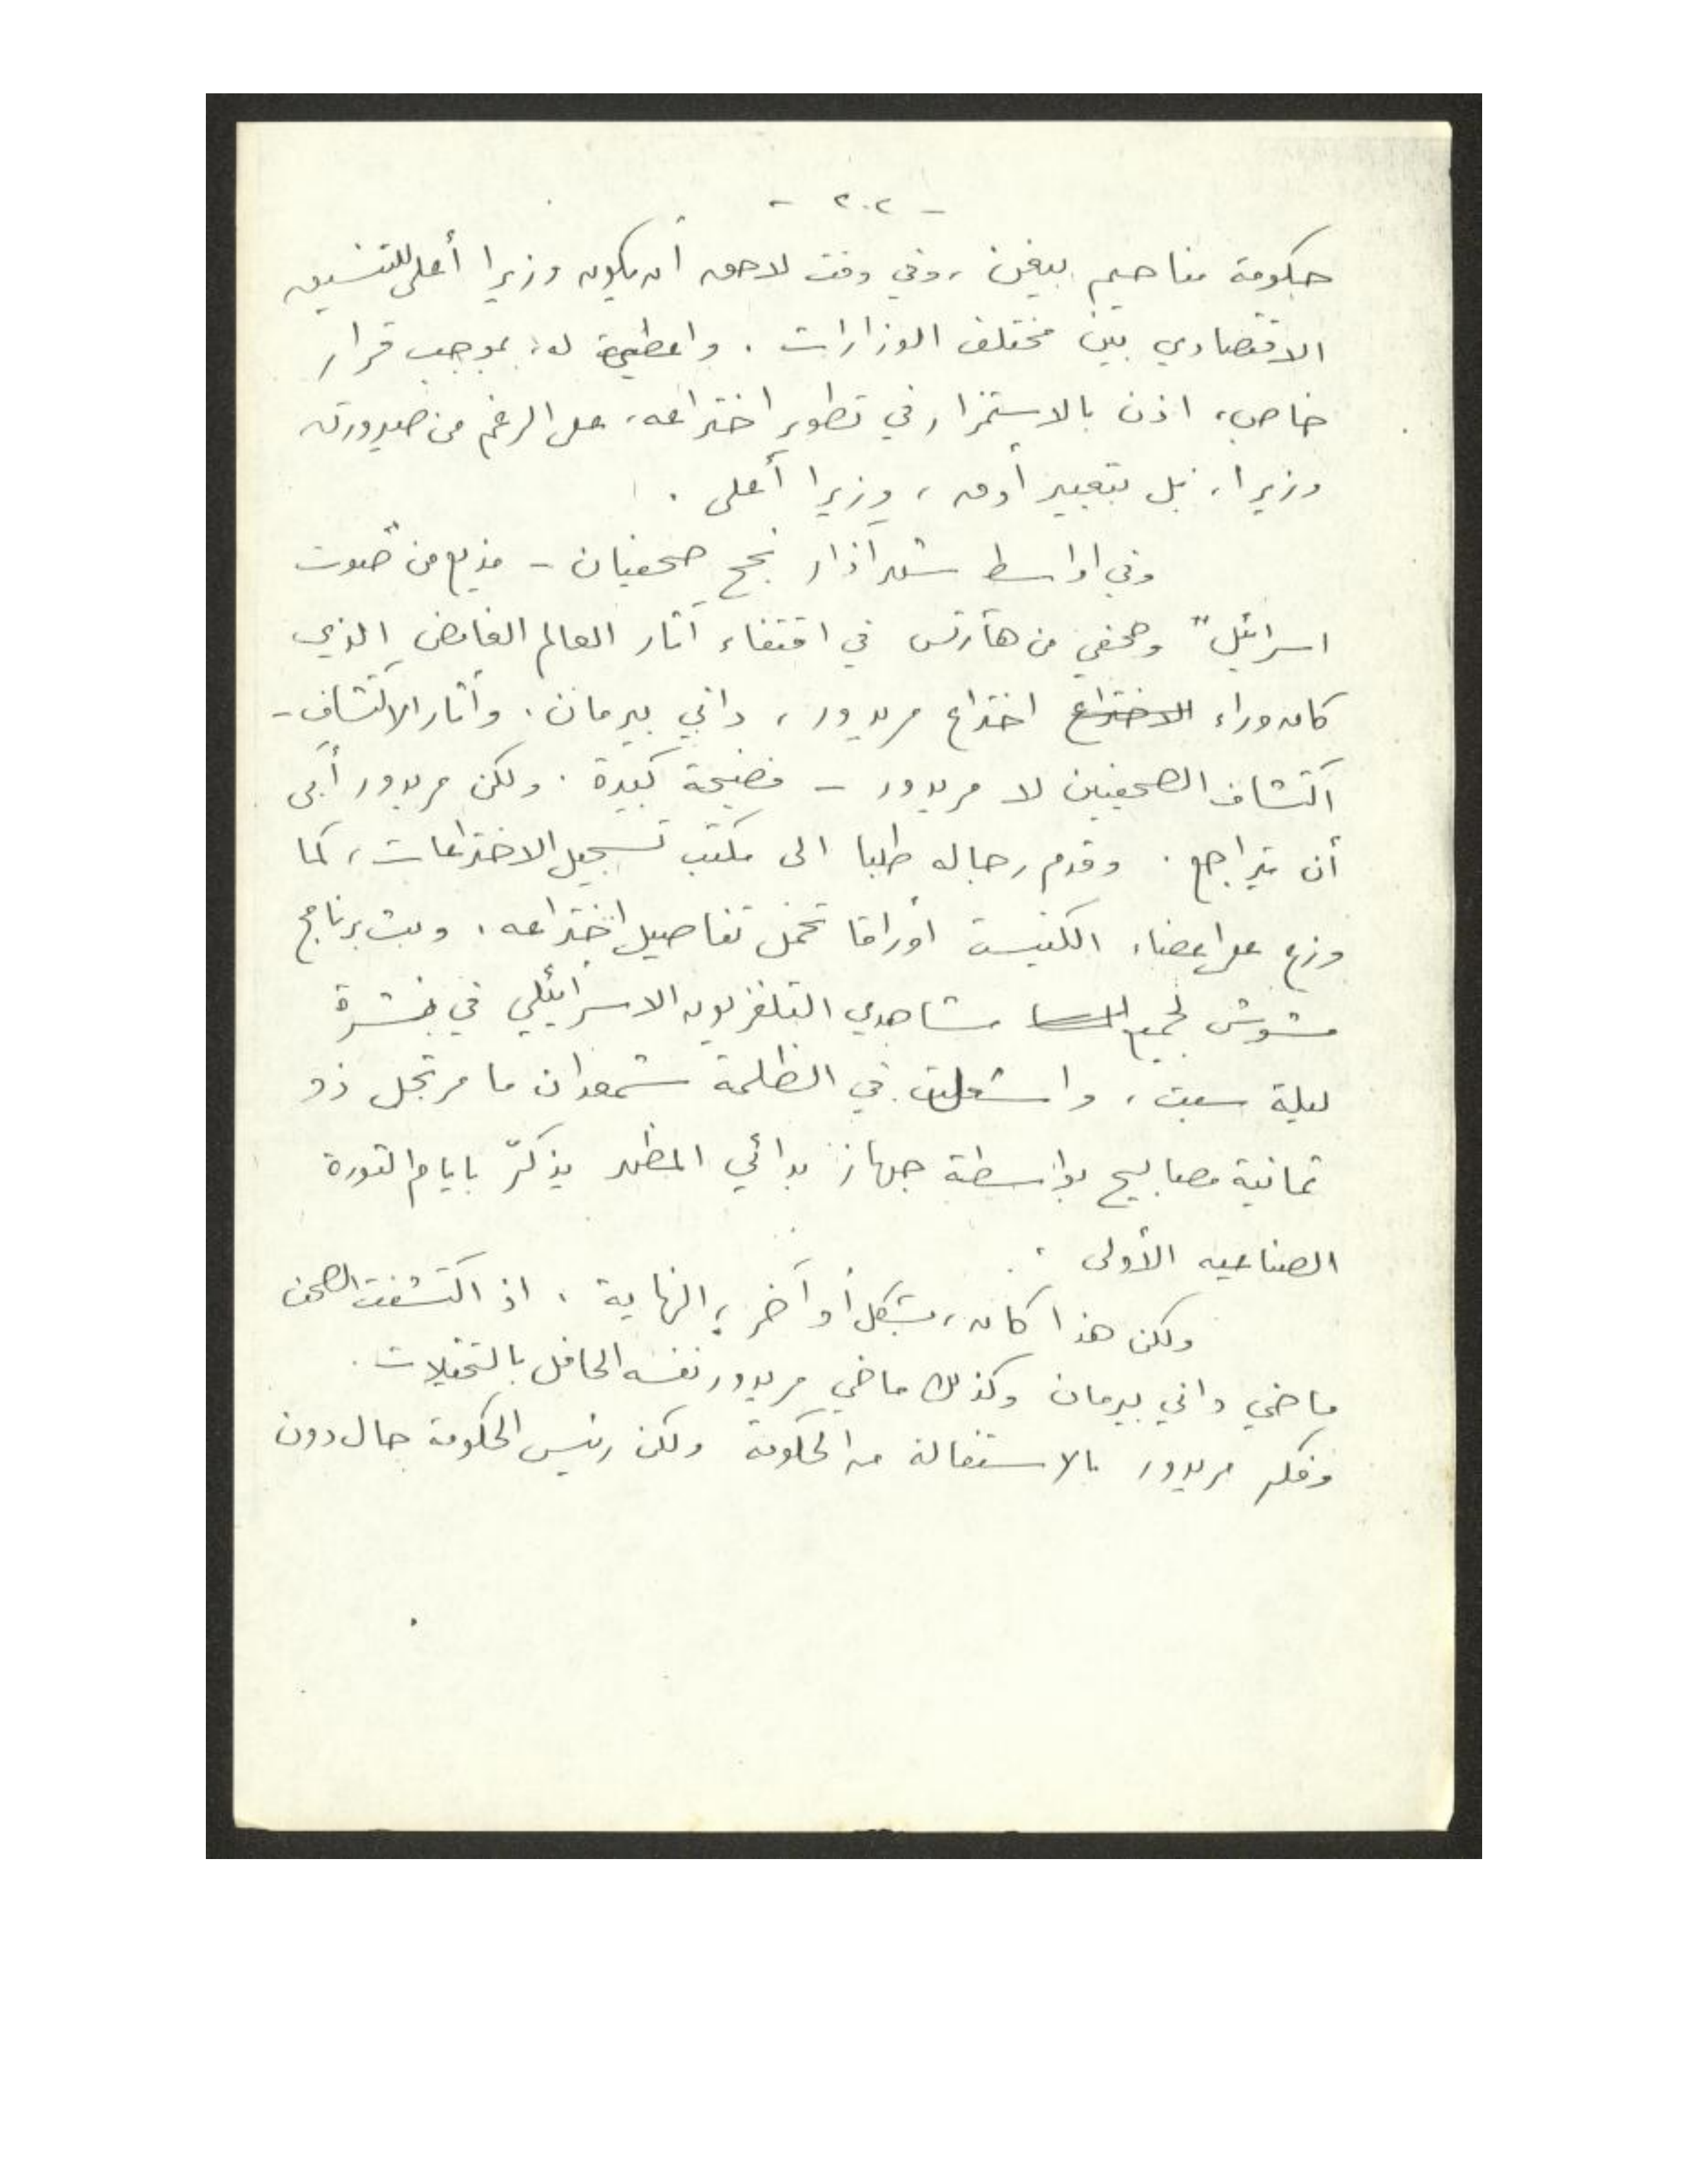 - ٢٠٢ -
حكومة مناحيم بيغن ، وفي وقت لاحق أن يكون وزيرا أعلى للتنسيق
الاقتصادي بين مختلف الوزارات . واعطي له ، بموجب قرار
خاص ، اذن بالاستمرار في تطوير اختراعه ، على الرغم من صيرورته
وزيرا ، بل بتعبير أدق ، وزيرا أعلى .
وفي اواسط شهر آذار نجح صحفيان - مذيع من "صوت
اسرائيل" وصحفي من هآرتس في اقتفاء آثار العالم الغامض الذي
كان وراء الاختراع اختراع مريدور ، داني بيرمان . وأثار الاكتشاف -
اكتشاف الصحفيين لا مريدور - فضيحة كبيرة . ولكن مريدور أبى
أن يتراجع . وقدم رجاله طلبا الى مكتب تسجيل الاختراعات ، كما
وزع على اعضاء الكنيست اوراقا تحمل تفاصيل اختراعه . وبث برنامج
مشوش لجميع مشاهدي التلفزيون الاسرائيلي في نشرة
ليلة سبت ، واشعلت في الظلمة شمعدان ما مرتجل ذو
ثمانية مصابيح بواسطة جهاز بدائي المظهر يذكّر بايام الثورة
الصناعيه الأولى .
ولكن هذا كان ، بشكل أو آخر ، النهاية . اذ اكتشفت الصحف
ماضي داني بيرمان وكذلك ماضي مريدور نفسه الحافل بالتخيلات .
وفكر مريدور بالاستقالة من الحكومة ولكن رئيس الحكومة حال دون